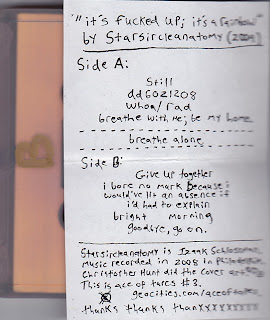 "it's fucked up; it's a rainbow"
by Starsircleanatomy (2009)
Side A:
Still
dd6021208
whoa/rad
breathe with me; be my home
breathe alone
Side B:
Give up together
i bore no mark because i
would've lit an absence if
i'd had to explain
bright morning
goodbye, go on.
Starsircleanatomy is Izaak Schlossman.
music recorded in 2008 in Philadelphia.
Christopher Hunt did the cover
This is ace of tapes #3.
geocities.com/aceoftapes
thanks thanks thanxxxxxxxxx